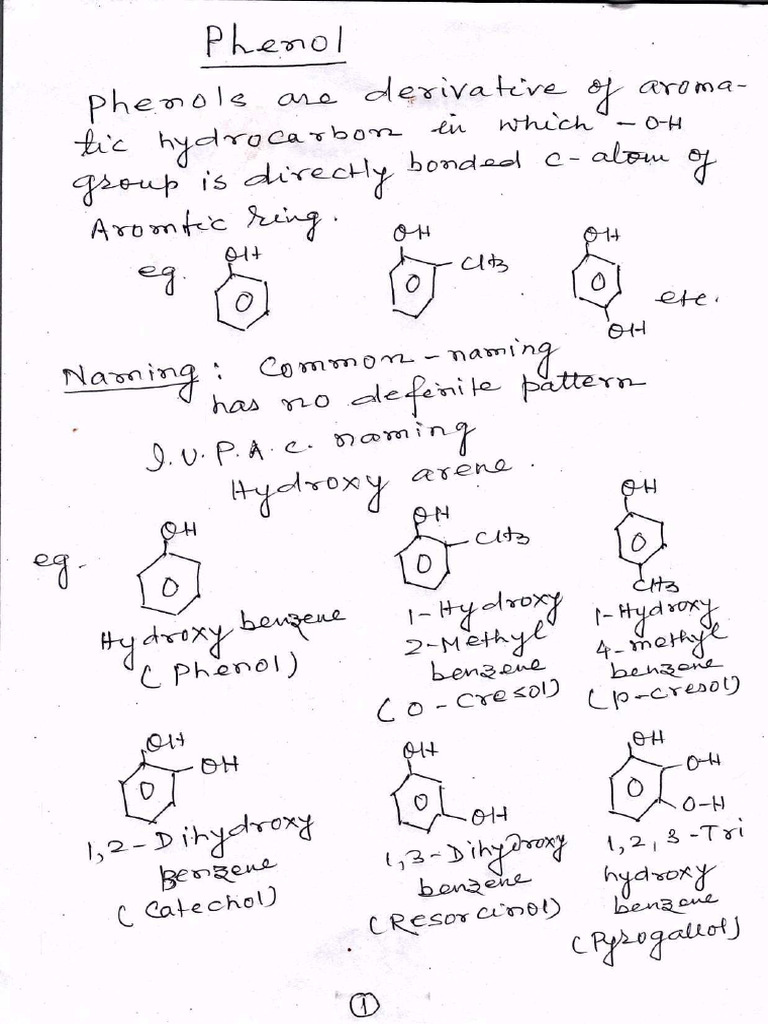 Phenol
Phenols are derivative of aroma-
tic hydrocarbon in which -OH
group is directly bonded C-atom of
Aromtic ring.
eg. OH OH CH3 OH OH etc.
Naming: Common-naming
has no definite pattern
I.U.P.A.C. naming
Hydroxy arene.
eg. OH OH CH3 OH CH3
Hydroxy benzene
(Phenol)
1-Hydroxy
2-Methyl
benzene
(O-Cresol)
1-Hydroxy
4-methyl
benzene
(p-cresol)
OH OH
1,2-Dihydroxy
Benzene
(Catechol)
OH OH
1,3-Dihydroxy
benzene
(Resorcinol)
OH O-H O-H
1,2,3-Tri
hydroxy
benzene
(Pyrogallol)
1